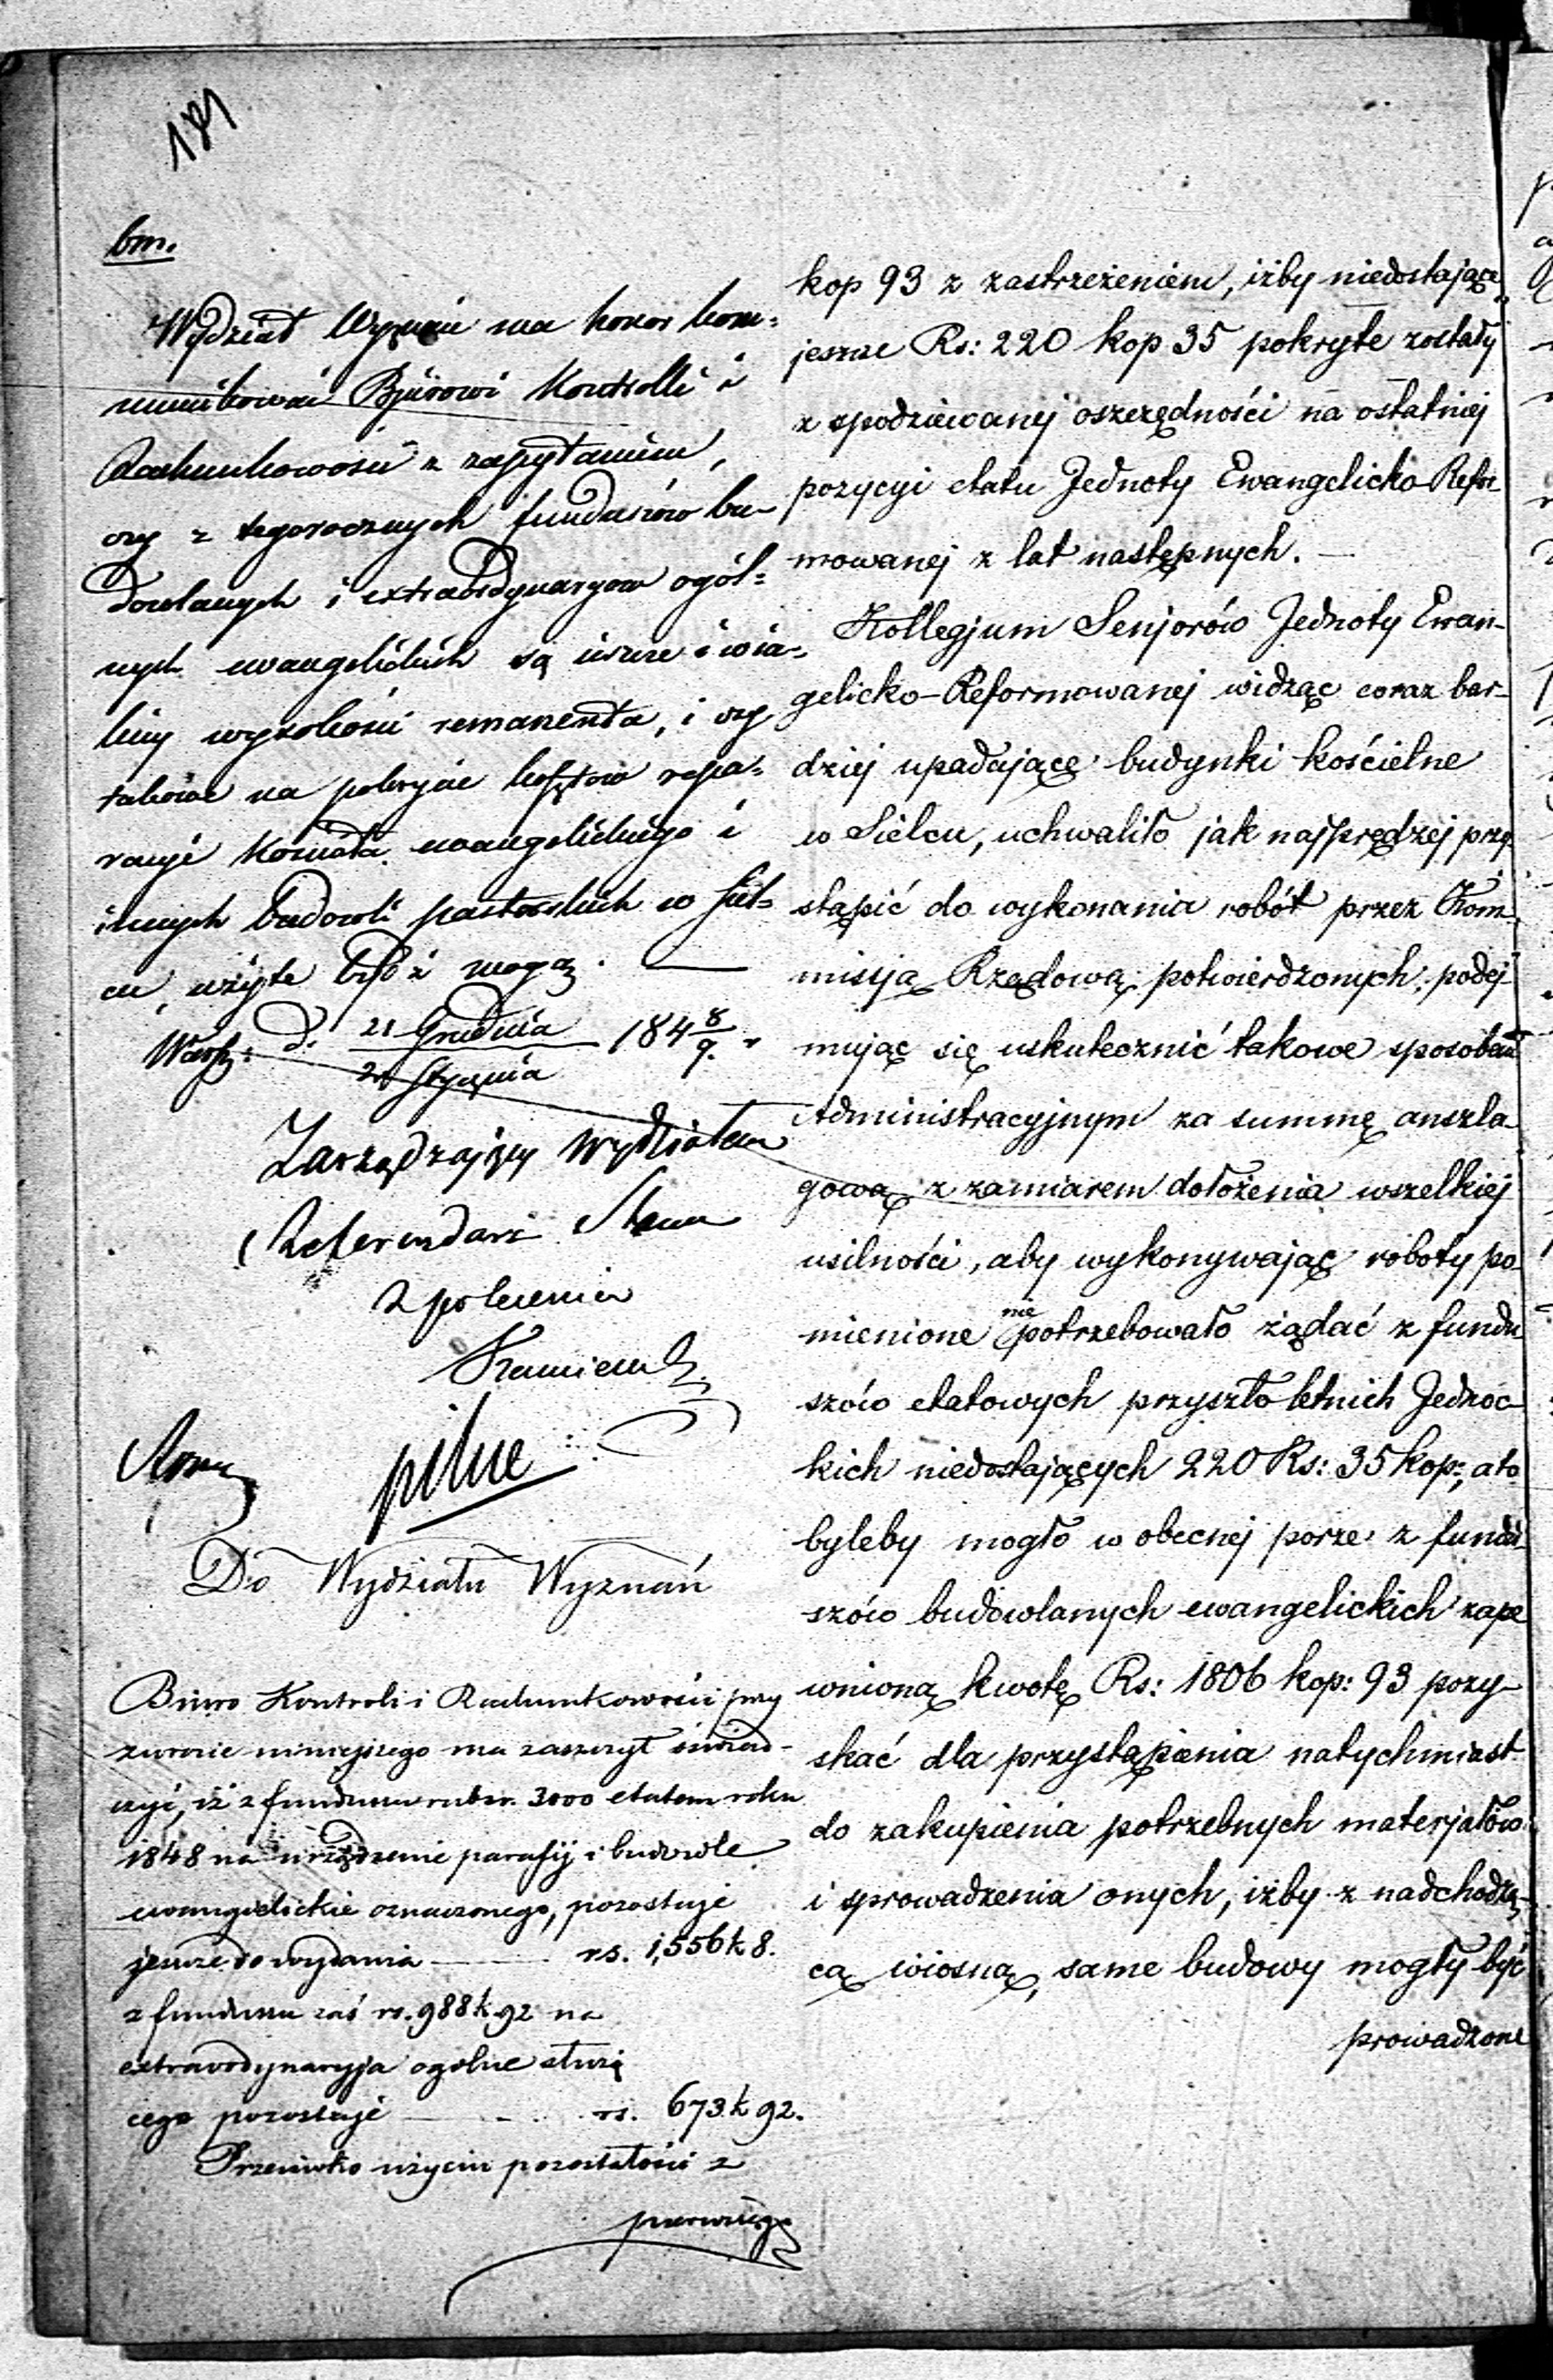 bm.
Wydział Wyznań ma honor kom=
munikować Bjürowi Kontrolli i
Rachunkowości z zapytaniem,
czy z tegorocznych funduszów bu-
dowlanych i extraordynaryow ogól=
nych ewangelickich są jeszcze i w ja-
kiej wysokości remanenta, i czy
takowe na pokrycie kosztów repa=
racyi Kościoła ewangelickiego i
innych budowli pastorskich w Siel-
cu, użyte bydź mogą. —
Warsz: d. 21 Grudnia 184 8/9. r
2 Stycznia
Zarządzający Wydziałem
Referendarz Stanu
Z polecenia
pilne
Do Wydziału Wyznań
Biuro Kontroli i Rachunkowości przy
zwrocie niniejszego ma zaszczyt oświad-
czyć, iż z funduszu rubsr. 3000 etatem roku
1848 na urządzenie parafij i budowle
ewangielickie oznaczonego, pozostaje
jeszcze do wydania —— rs. 1,556 k 8.
z funduszu zaś rs. 988 k 92 na
extraordynaryja ogólne służą
cego pozostaje —— rs. 673. k 92.
Przeciwko użyciu pozostałości z
pierwszego
kop 93 z zastrzeżeniem, iżby niedostające
jeszcze Rs: 220 kop 35 pokryte zostały
z spodziewanej oszczędności na ostatniej
pozycyi etatu Jednoty Ewangelicko-Refor-
mowanej z lat następnych. —
Kollegjum Senjorów Jednoty Ewan-
gelicko-Reformowanej widząc coraz bar-
dziej upadające budynki kościelne
w Sielcu, uchwaliło jak najprędzej przy-
stąpić do wykonania robót przez Kom-
missją Rządową potwierdzonych, podej-
mując się uskutecznić takowe sposobem
Administracyjnym za summę anszla-
gową z zamiarem dołożenia wszelkiej
usilności, aby wykonywając roboty po-
mienione nie potrzebowało żądać z fundu
szów etatowych przyszło letnich Jednoc-
kich niedostających 220 Rs: 35 kop:, a to
byleby mogło w obecnej porze z fundu-
szów budowlanych ewangelickich zape
wnioną kwotę Rs: 1806 kop: 93 pozy-
skać dla przystąpienia natychmiast
do zakupienia potrzebnych materjałów
i sprowadzenia onych, iżby z nadchodzą-
cą wiosną, same budowy mogły być
prowadzone